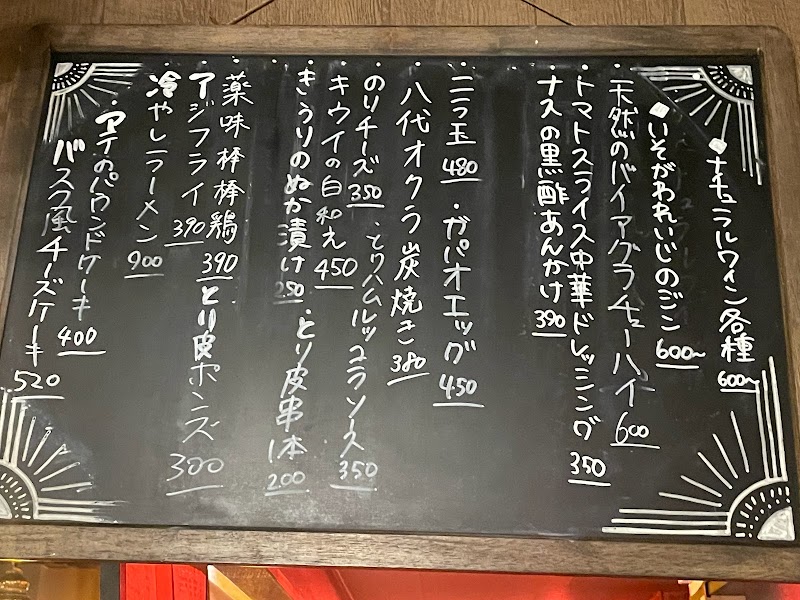 ナチュラルワイン各種 600〜
いそがわれいじのジン 600〜
天然のバイアグラチューハイ 600
トマトスライス中華ドレッシング 350
ナスの黒酢あんかけ 390
ニラ玉 480
・ガパオエッグ 450
八代オクラ炭焼き 380
のりチーズ 350
とりハムルッコラソース 350
キウイの白和え 450
きうりのぬか漬け 250
・とり皮串1本 200
薬味棒棒鶏 390
とり皮ポンズ 300
アジフライ 390
冷やしラーメン 900
・アテのパウンドケーキ 400
バスク風チーズケーキ 520